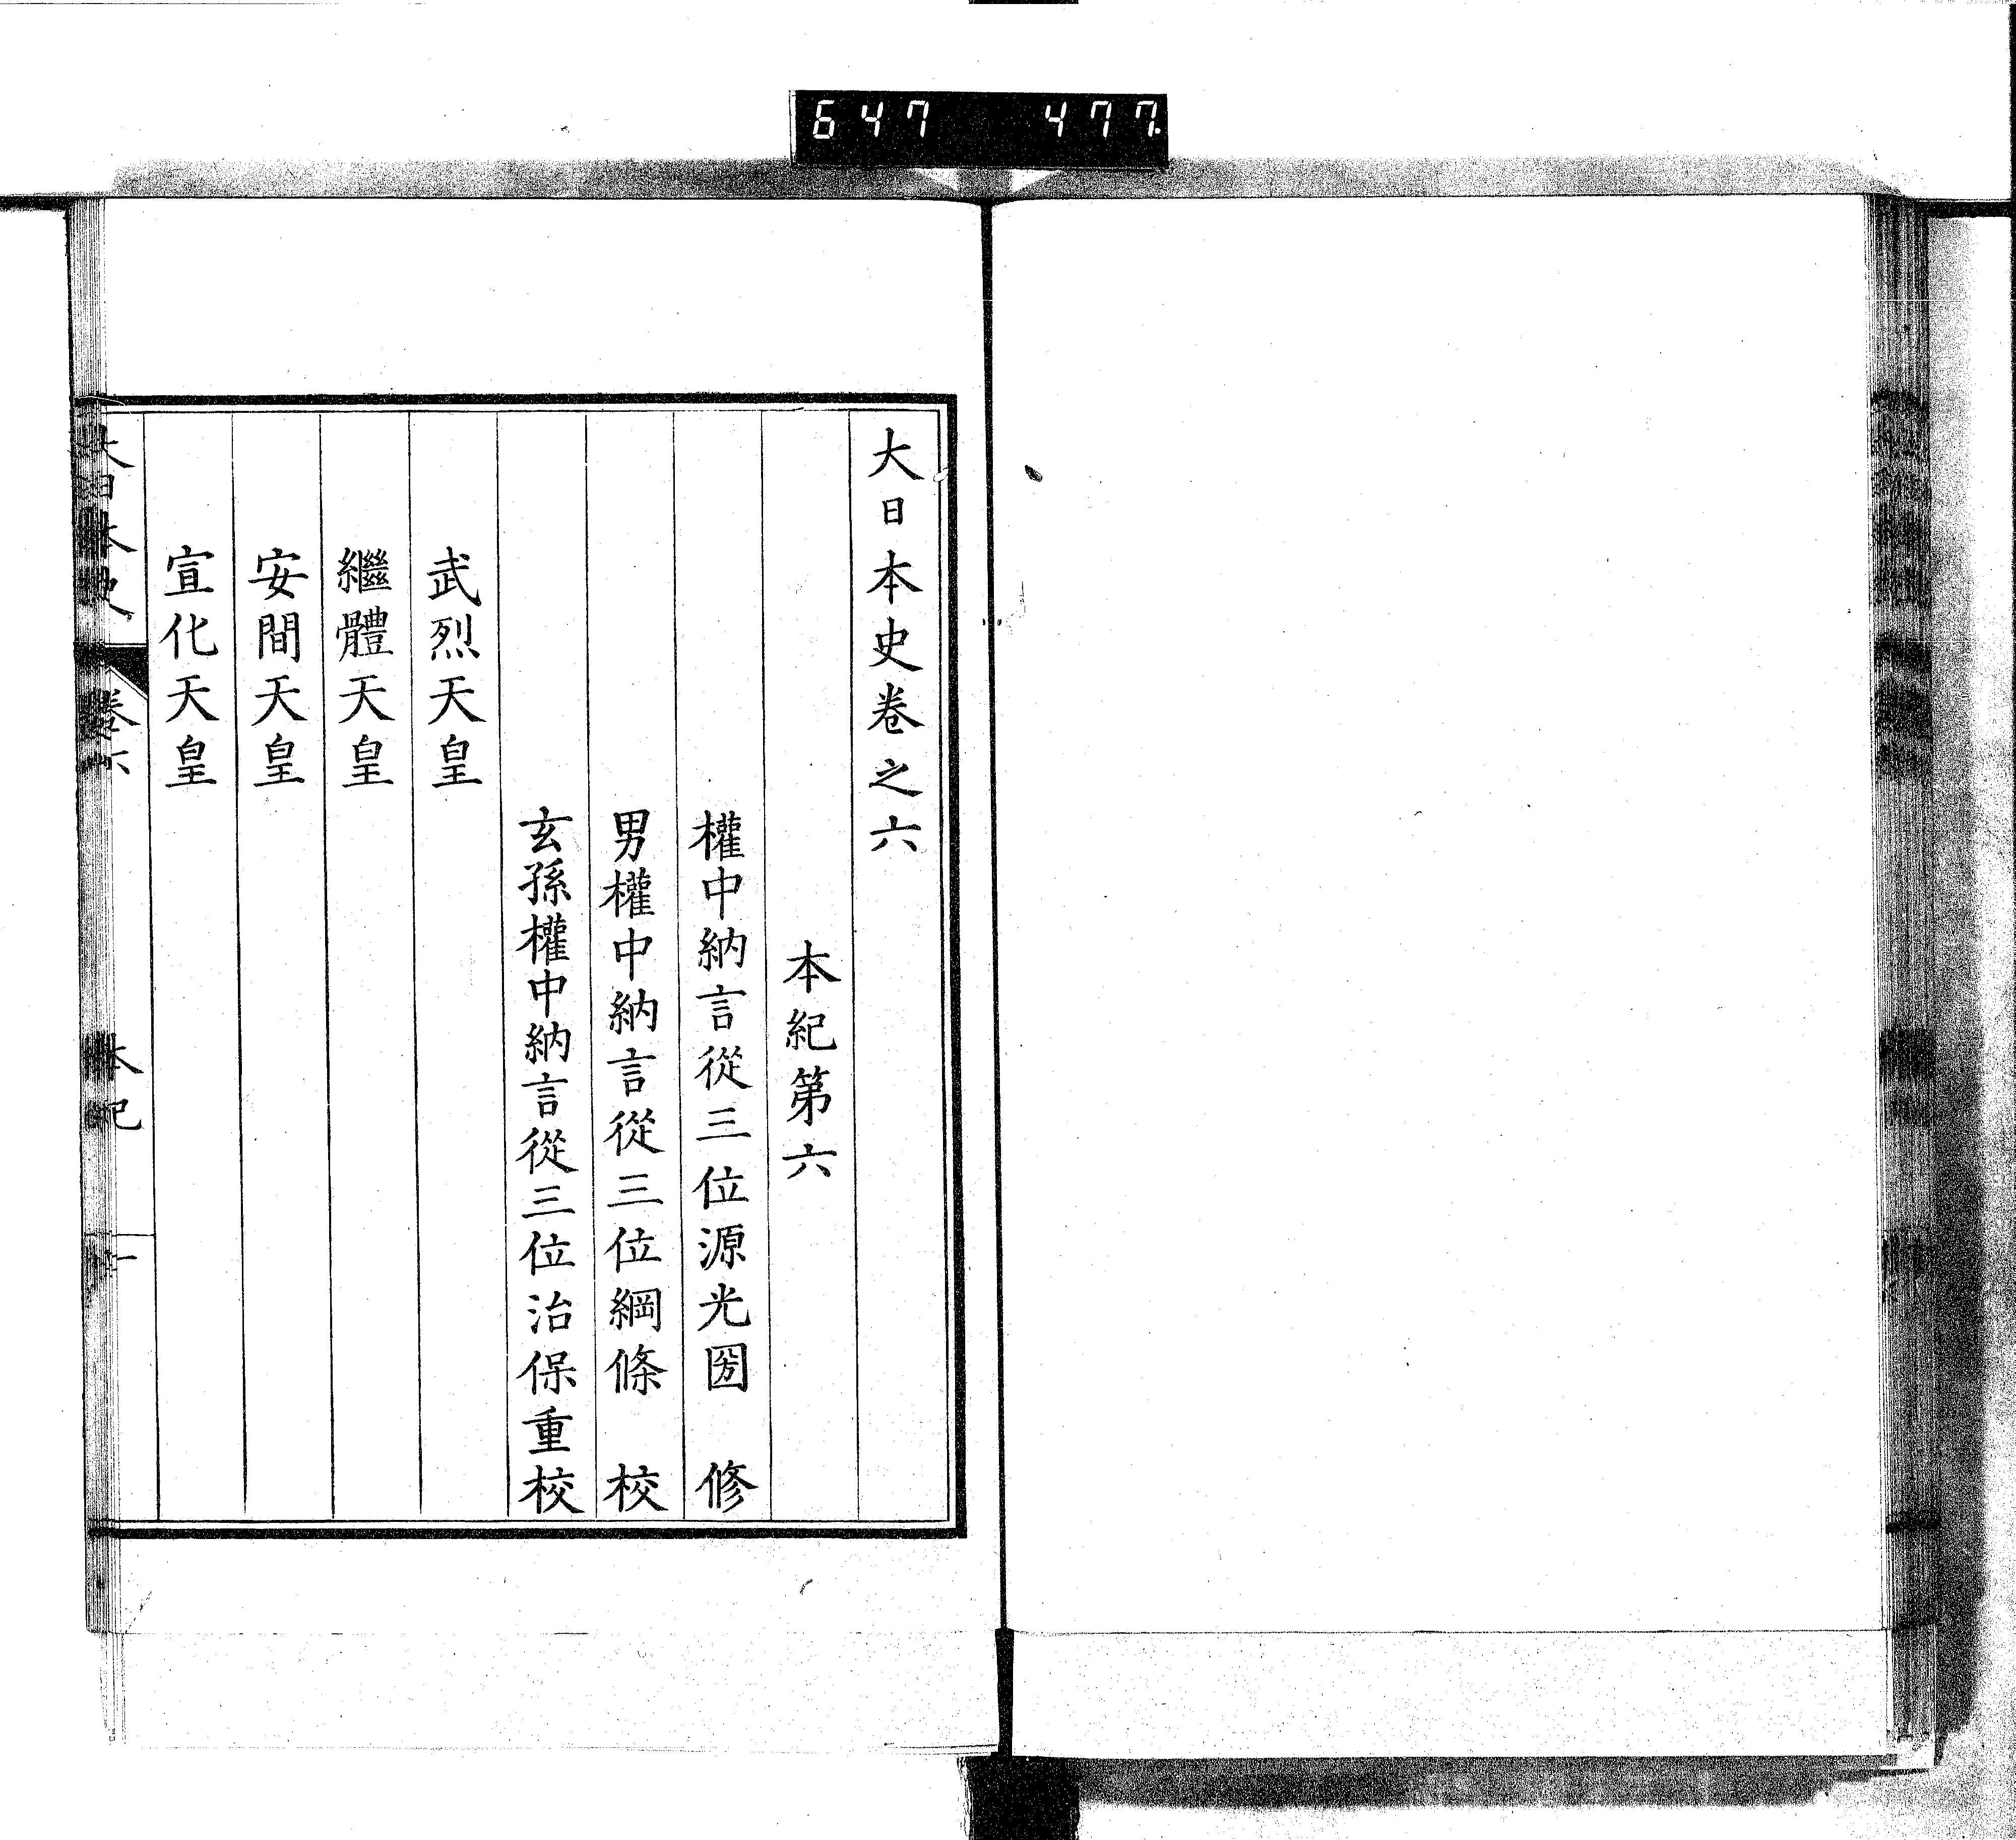 647 477
大日本史卷之六
本紀第六
權中納言從三位源光圀 修
男權中納言從三位綱條 校
玄孫權中納言從三位治保重校
武烈天皇
繼體天皇
安閒天皇
宣化天皇
大日本史 卷六 本紀 一